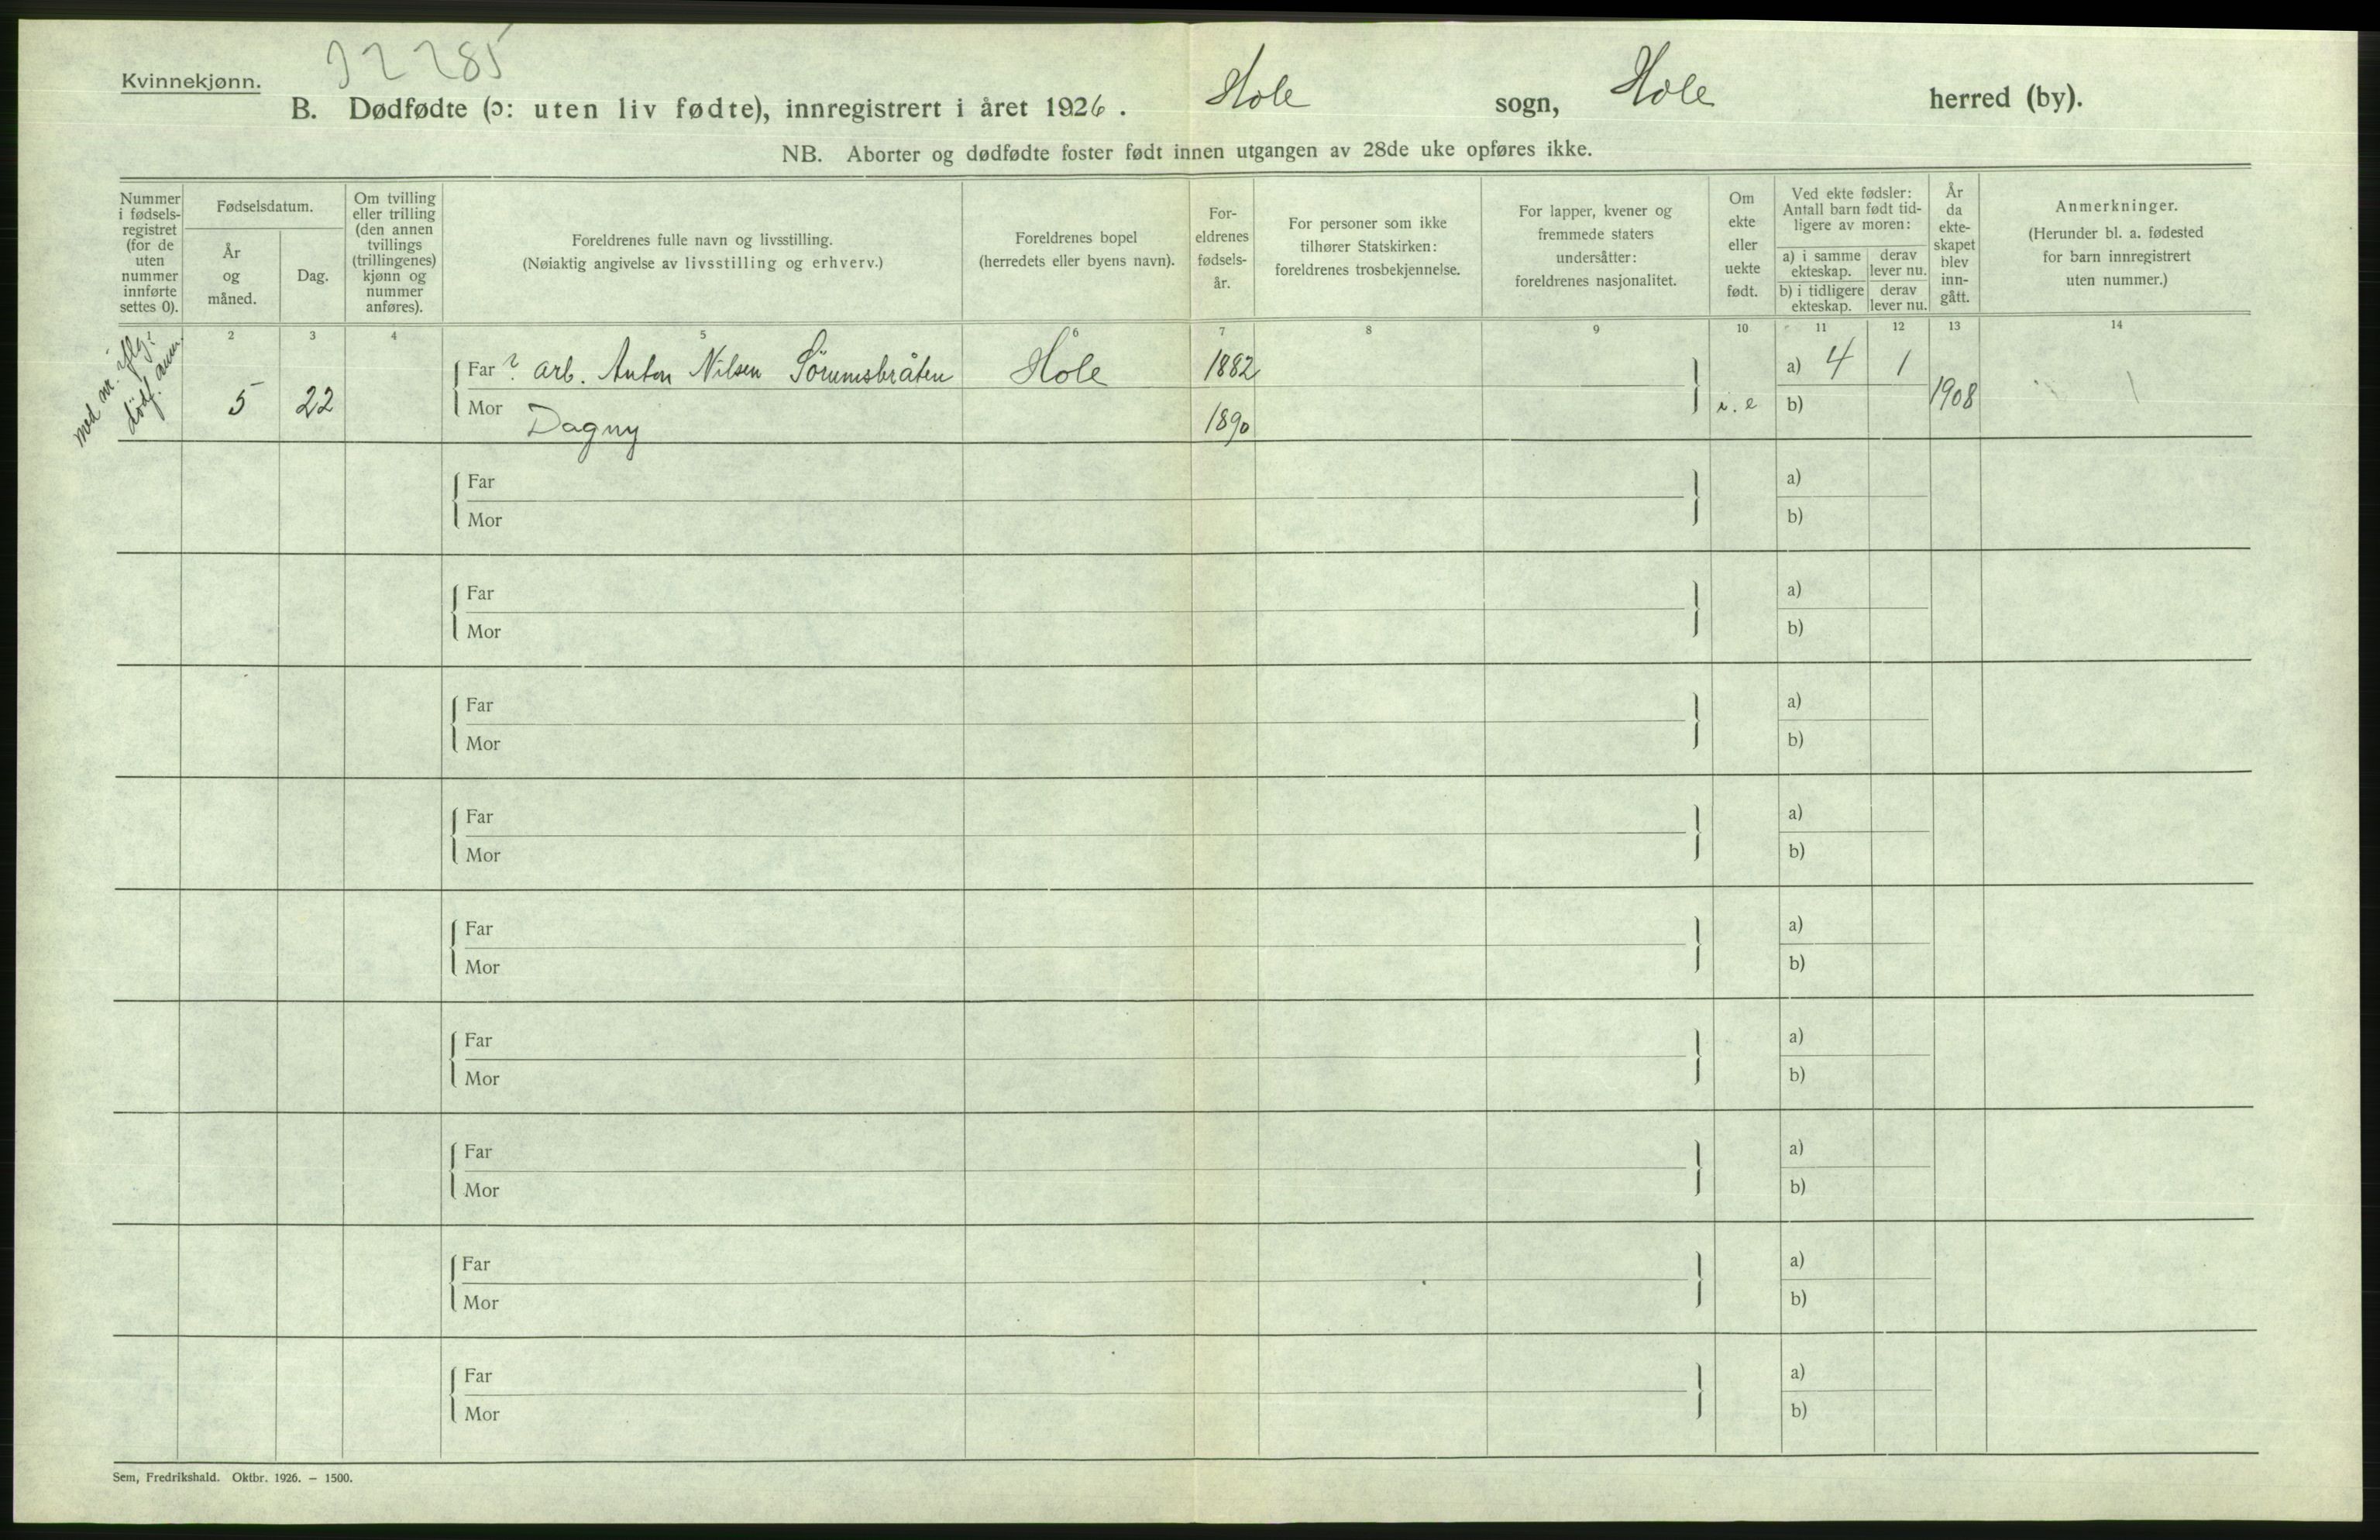 Kvinnekjønn.
22285
B. Dødfødte (ɔ: uten liv fødte), innregistrert i året 1926. Hole sogn, Hole herred (by).
NB. Aborter og dødfødte foster født innen utgangen av 28de uke opføres ikke.
Nummer i fødsels-registret (for de uten nummer innførte settes 0).
Fødselsdatum.
År og måned.
Dag.
Om tvilling eller trilling (den annen tvillings (trillingenes) kjønn og nummer anføres).
Foreldrenes fulle navn og livsstilling.
(Nøiaktig angivelse av livsstilling og erhverv.)
Foreldrenes bopel
(herredets eller byens navn).
For-eldrenes fødsels-år.
For personer som ikke tilhører Statskirken: foreldrenes trosbekjennelse.
For lapper, kvener og fremmede staters undersåtter: foreldrenes nasjonalitet.
Om ekte eller uekte født.
Ved ekte fødsler: Antall barn født tid-ligere av moren:
a) i samme ekteskap.
derav lever nu.
b) i tidligere ekteskap.
derav lever nu.
År da ekte-skapet blev inn-gått.
Anmerkninger.
(Herunder bl. a. fødested for barn innregistrert uten nummer.)
2 3 4 5 6 7 8 9 10 11 12 13 14
med nr. iflg.
dødf. anm.
5 22
Far ? arb. Anton Nilsen Sörumsbråten Hole 1882
Mor Dagny 1890
i. e
a) 4 1
b)
1908
Far
Mor
a)
b)
Far
Mor
a)
b)
Far
Mor
a)
b)
Far
Mor
a)
b)
Far
Mor
a)
b)
Far
Mor
a)
b)
Far
Mor
a)
b)
Far
Mor
a)
b)
Far
Mor
a)
b)
Sem, Fredrikshald. Oktbr. 1926. – 1500.